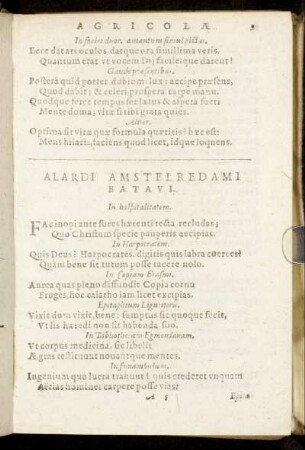 AGRICOLÆ
In facies duar. amantum simul pictas.
Ecce dat ars oculos, datque ora simillima veris.
Quantum erat vt vocem Dij facileique darent!
Gaude præsentibus.
Postera quid portet dubium: lux: accipe præsens,
Quod dabit; & celeri prospera carpe manu.
Quodque feret tempus fer lætus & aspera forti
Mente doma; vitæ si tibi grata quies.
Aliter.
Optima sit vitæ quæ formula quæritis? hæc est:
Mens hilaris, faciens quod licet, idque loquens.
ALARDI AMSTELREDAMI
BATAVI.
In hospitalitatem.
FAc inopi ante fores hærenti tecta recludas;
Quo Christum specie pauperis accipias.
In Harpocratem.
Quis Deus? Harpocrates. digitis quis labra coërces?
Quam bene sit tutum posse tacere nolo.
In Copiam Erasmi.
Aurea quas pleno diffundit Copia cornu
Fruges, hoc calatho iam licet excipias.
Epitaphium Liguritoris.
Vixit dum vixit, bene: sumptus sic quoque fecit,
Vt lis hæredi non sit habenda suo.
In Bibliothecam Egmondanam.
Vt corpus medicina, sic libelli
Ægras restituunt nouantque mentes.
In funambulum.
Ingenium quo lucra trahunt! quis crederet vnquam
Aërias homines carpere posse vias!
A 5